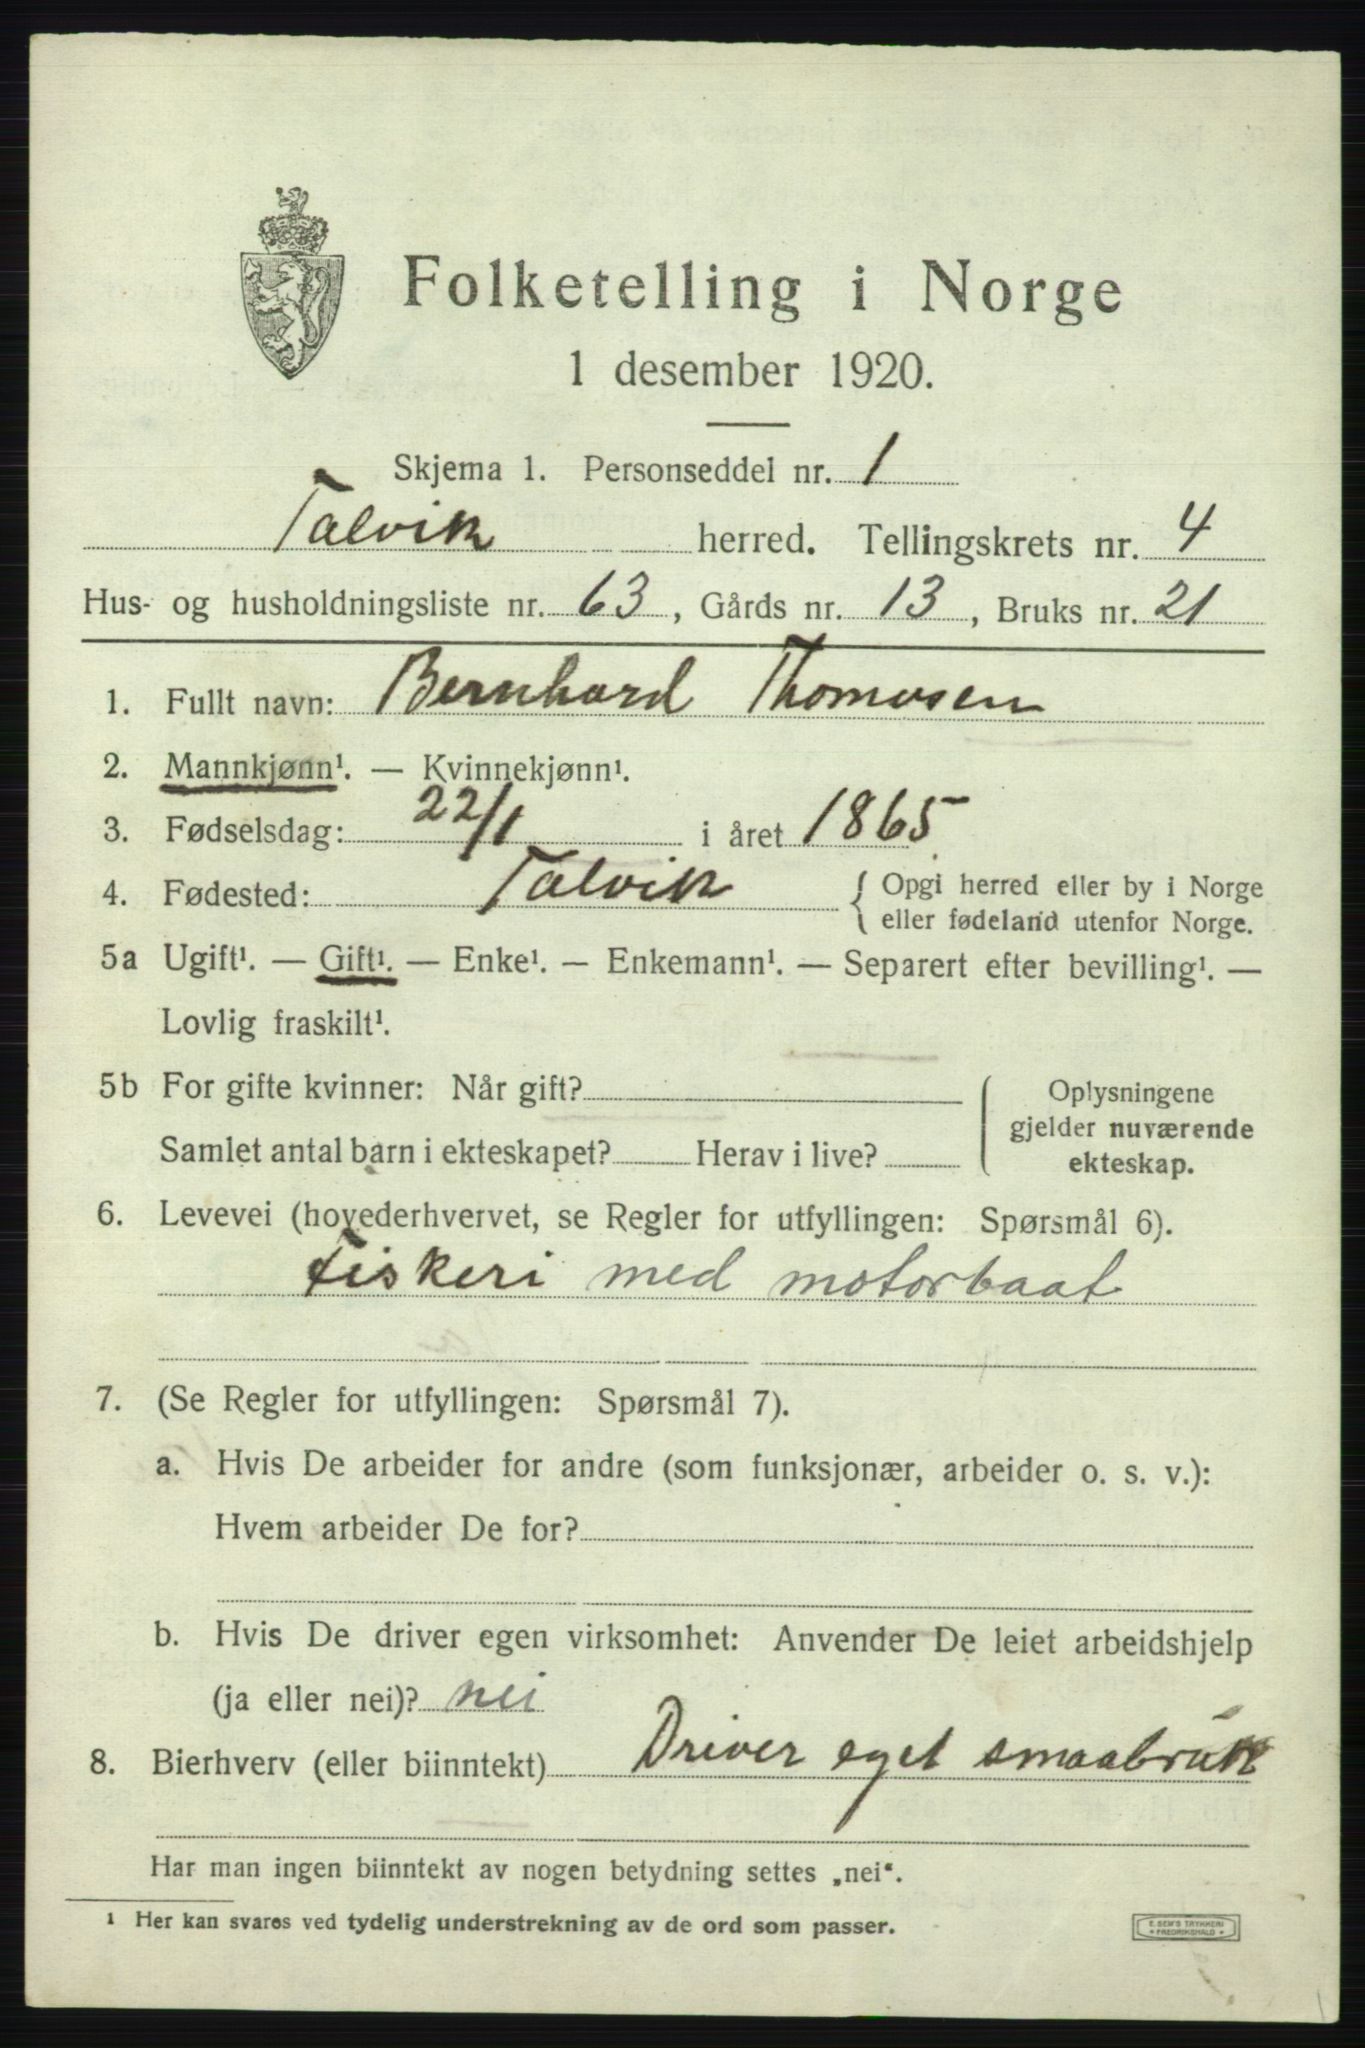 Folketelling i Norge
1 desember 1920.
Skjema 1. Personseddel nr. 1
Talvik herred. Tellingskrets nr. 4
Hus- og husholdningsliste nr. 63, Gårds nr. 13, Bruks nr. 21
1. Fullt navn: Bernhard Thomasen
2. Mannkjønn¹. — Kvinnekjønn¹.
3. Fødselsdag: 22/1 i året 1865
4. Fødested: Talvik { Opgi herred eller by i Norge
eller fødeland utenfor Norge.
5a Ugift¹. — Gift¹. — Enke¹. — Enkemann¹. — Separert efter bevilling¹. —
Lovlig fraskilt¹.
5b For gifte kvinner: Når gift?
Samlet antal barn i ekteskapet? Herav i live?
Oplysningene
gjelder nuværende
ekteskap.
6. Levevei (hovederhvervet, se Regler for utfyllingen: Spørsmål 6).
Fiskeri med motorbaat
7. (Se Regler for utfyllingen: Spørsmål 7).
a. Hvis De arbeider for andre (som funksjonær, arbeider o. s. v.):
Hvem arbeider De for?
b. Hvis De driver egen virksomhet: Anvender De leiet arbeidshjelp
(ja eller nei)? nei
8. Bierhverv (eller biinntekt) Driver eget smaabruk
Har man ingen biinntekt av nogen betydning settes „nei“.
¹ Her kan svares ved tydelig understrekning av de ord som passer.
E. SEM'S TRYKKERI
FREDRIKSHALD